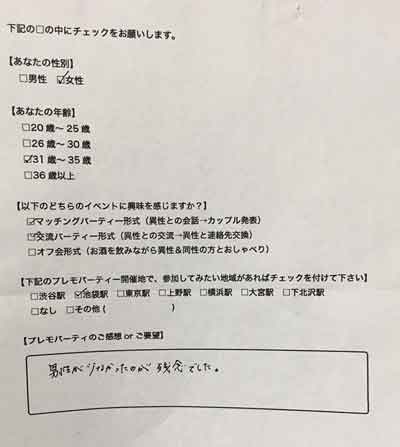 下記の□の中にチェックをお願いします。
【あなたの性別】
□男性 ☑女性
【あなたの年齢】
□20歳～25歳
□26歳～30歳
☑31歳～35歳
□36歳以上
【以下のどちらのイベントに興味を感じますか？】
☑マッチングパーティー形式（異性との会話→カップル発表）
☑交流パーティー形式（異性との交流→異性と連絡先交換）
□オフ会形式（お酒を飲みながら異性＆同性の方とおしゃべり）
【下記のプレモパーティー開催地で、参加してみたい地域があればチェックを付けて下さい】
□渋谷駅 ☑池袋駅 □東京駅 □上野駅 □横浜駅 □大宮駅 □下北沢駅
□なし □その他（ ）
【プレモパーティのご感想 or ご要望】
男性が少なかったのが残念でした。